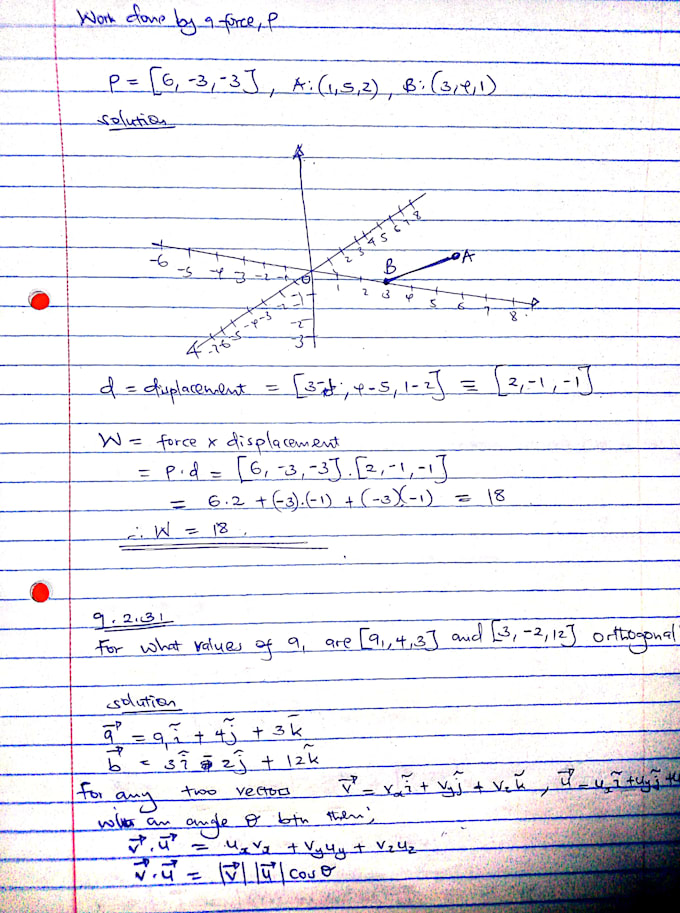 Work done by a force, P
P = [6, -3, -3] , A: (1,5,2) , B: (3,4,1)
solution
-6 -5 -4 -3 -2 -1 0 1 2 3 4 5 6 7 8
2 3 4 5 6 7 8
-7 -6 -5 -4 -3 -2
-1
-2
-3
B A
d = displacement = [3-1, 4-5, 1-2] = [2, -1, -1]
W = force x displacement
= P.d = [6, -3, -3] . [2, -1, -1]
= 6.2 + (-3).(-1) + (-3)(-1) = 18
∴ W = 18.
9.2.31
For what values of a₁ are [a₁, 4, 3] and [3, -2, 12] orthogonal
solution
a⃗ = a₁ĩ + 4j̃ + 3k̃
b⃗ = 3ĩ - 2j̃ + 12k̃
for any two vectors v⃗ = vₓĩ + vyj̃ + vzk̃ , u⃗ = uₓĩ + uyj̃ + u
with an angle θ btn then;
v⃗.u⃗ = uₓvₓ + vyuy + vzuz
v⃗.u⃗ = |v⃗| |u⃗| cosθ